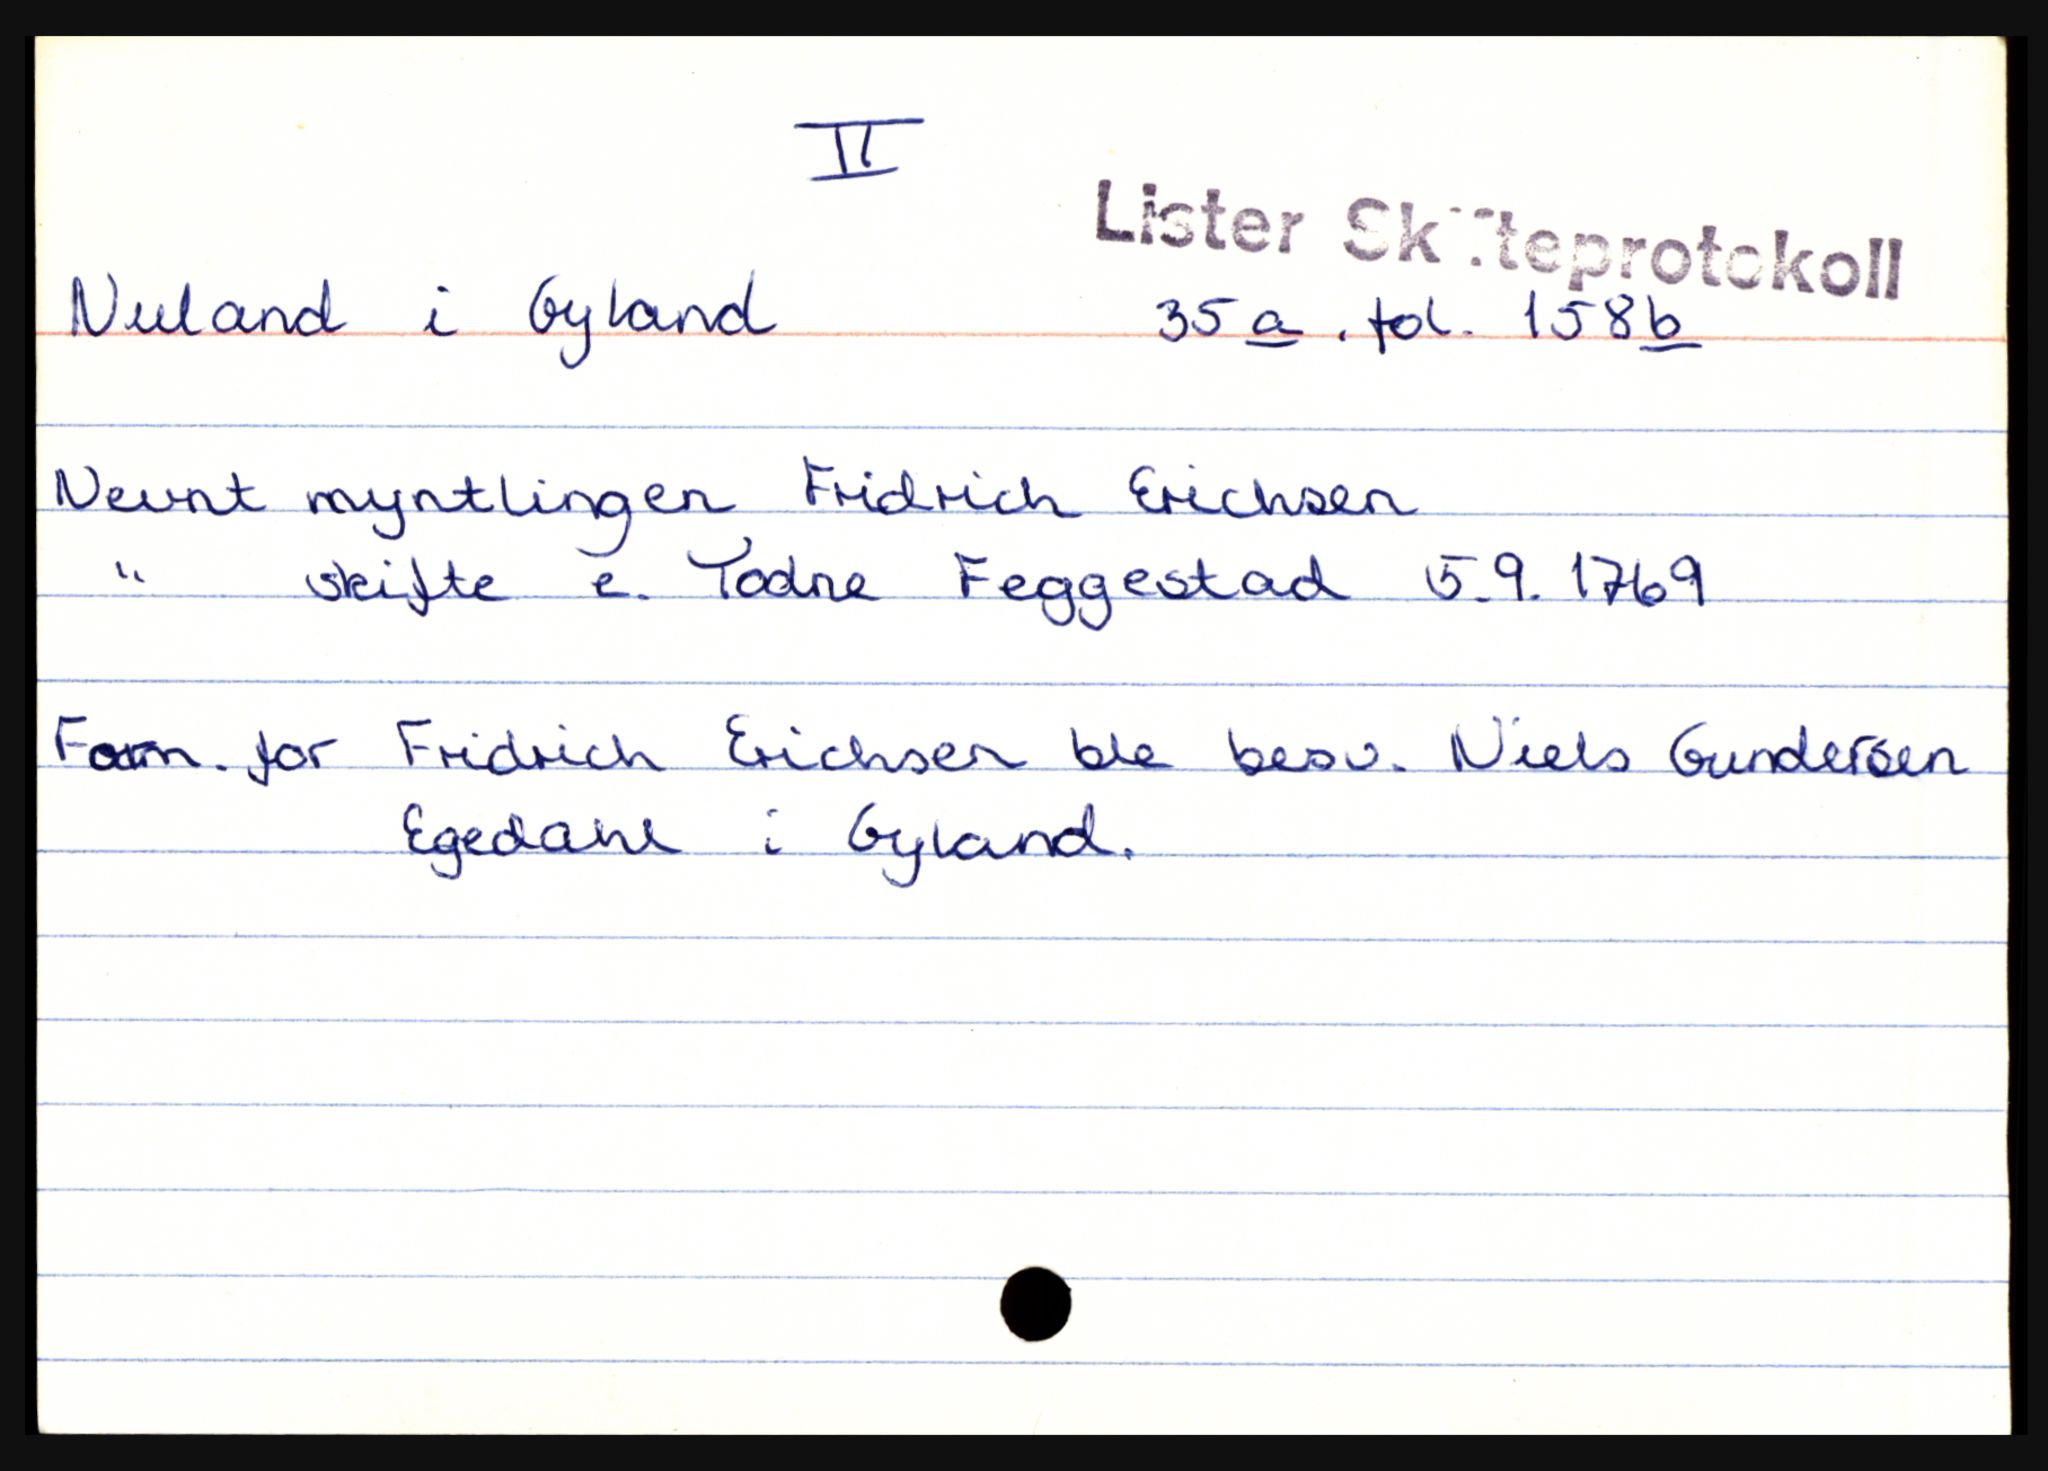 II
Lister Skifteprotokoll
Nuland i Gyland 35a. fol. 158b
Nevnt myntlingen Fridrich Erichsen
" skifte e. Todne Feggestad 5.9.1769
Form. for Fridrich Erichsen ble besv. Niels Gundersen
Egedahl i Gyland.